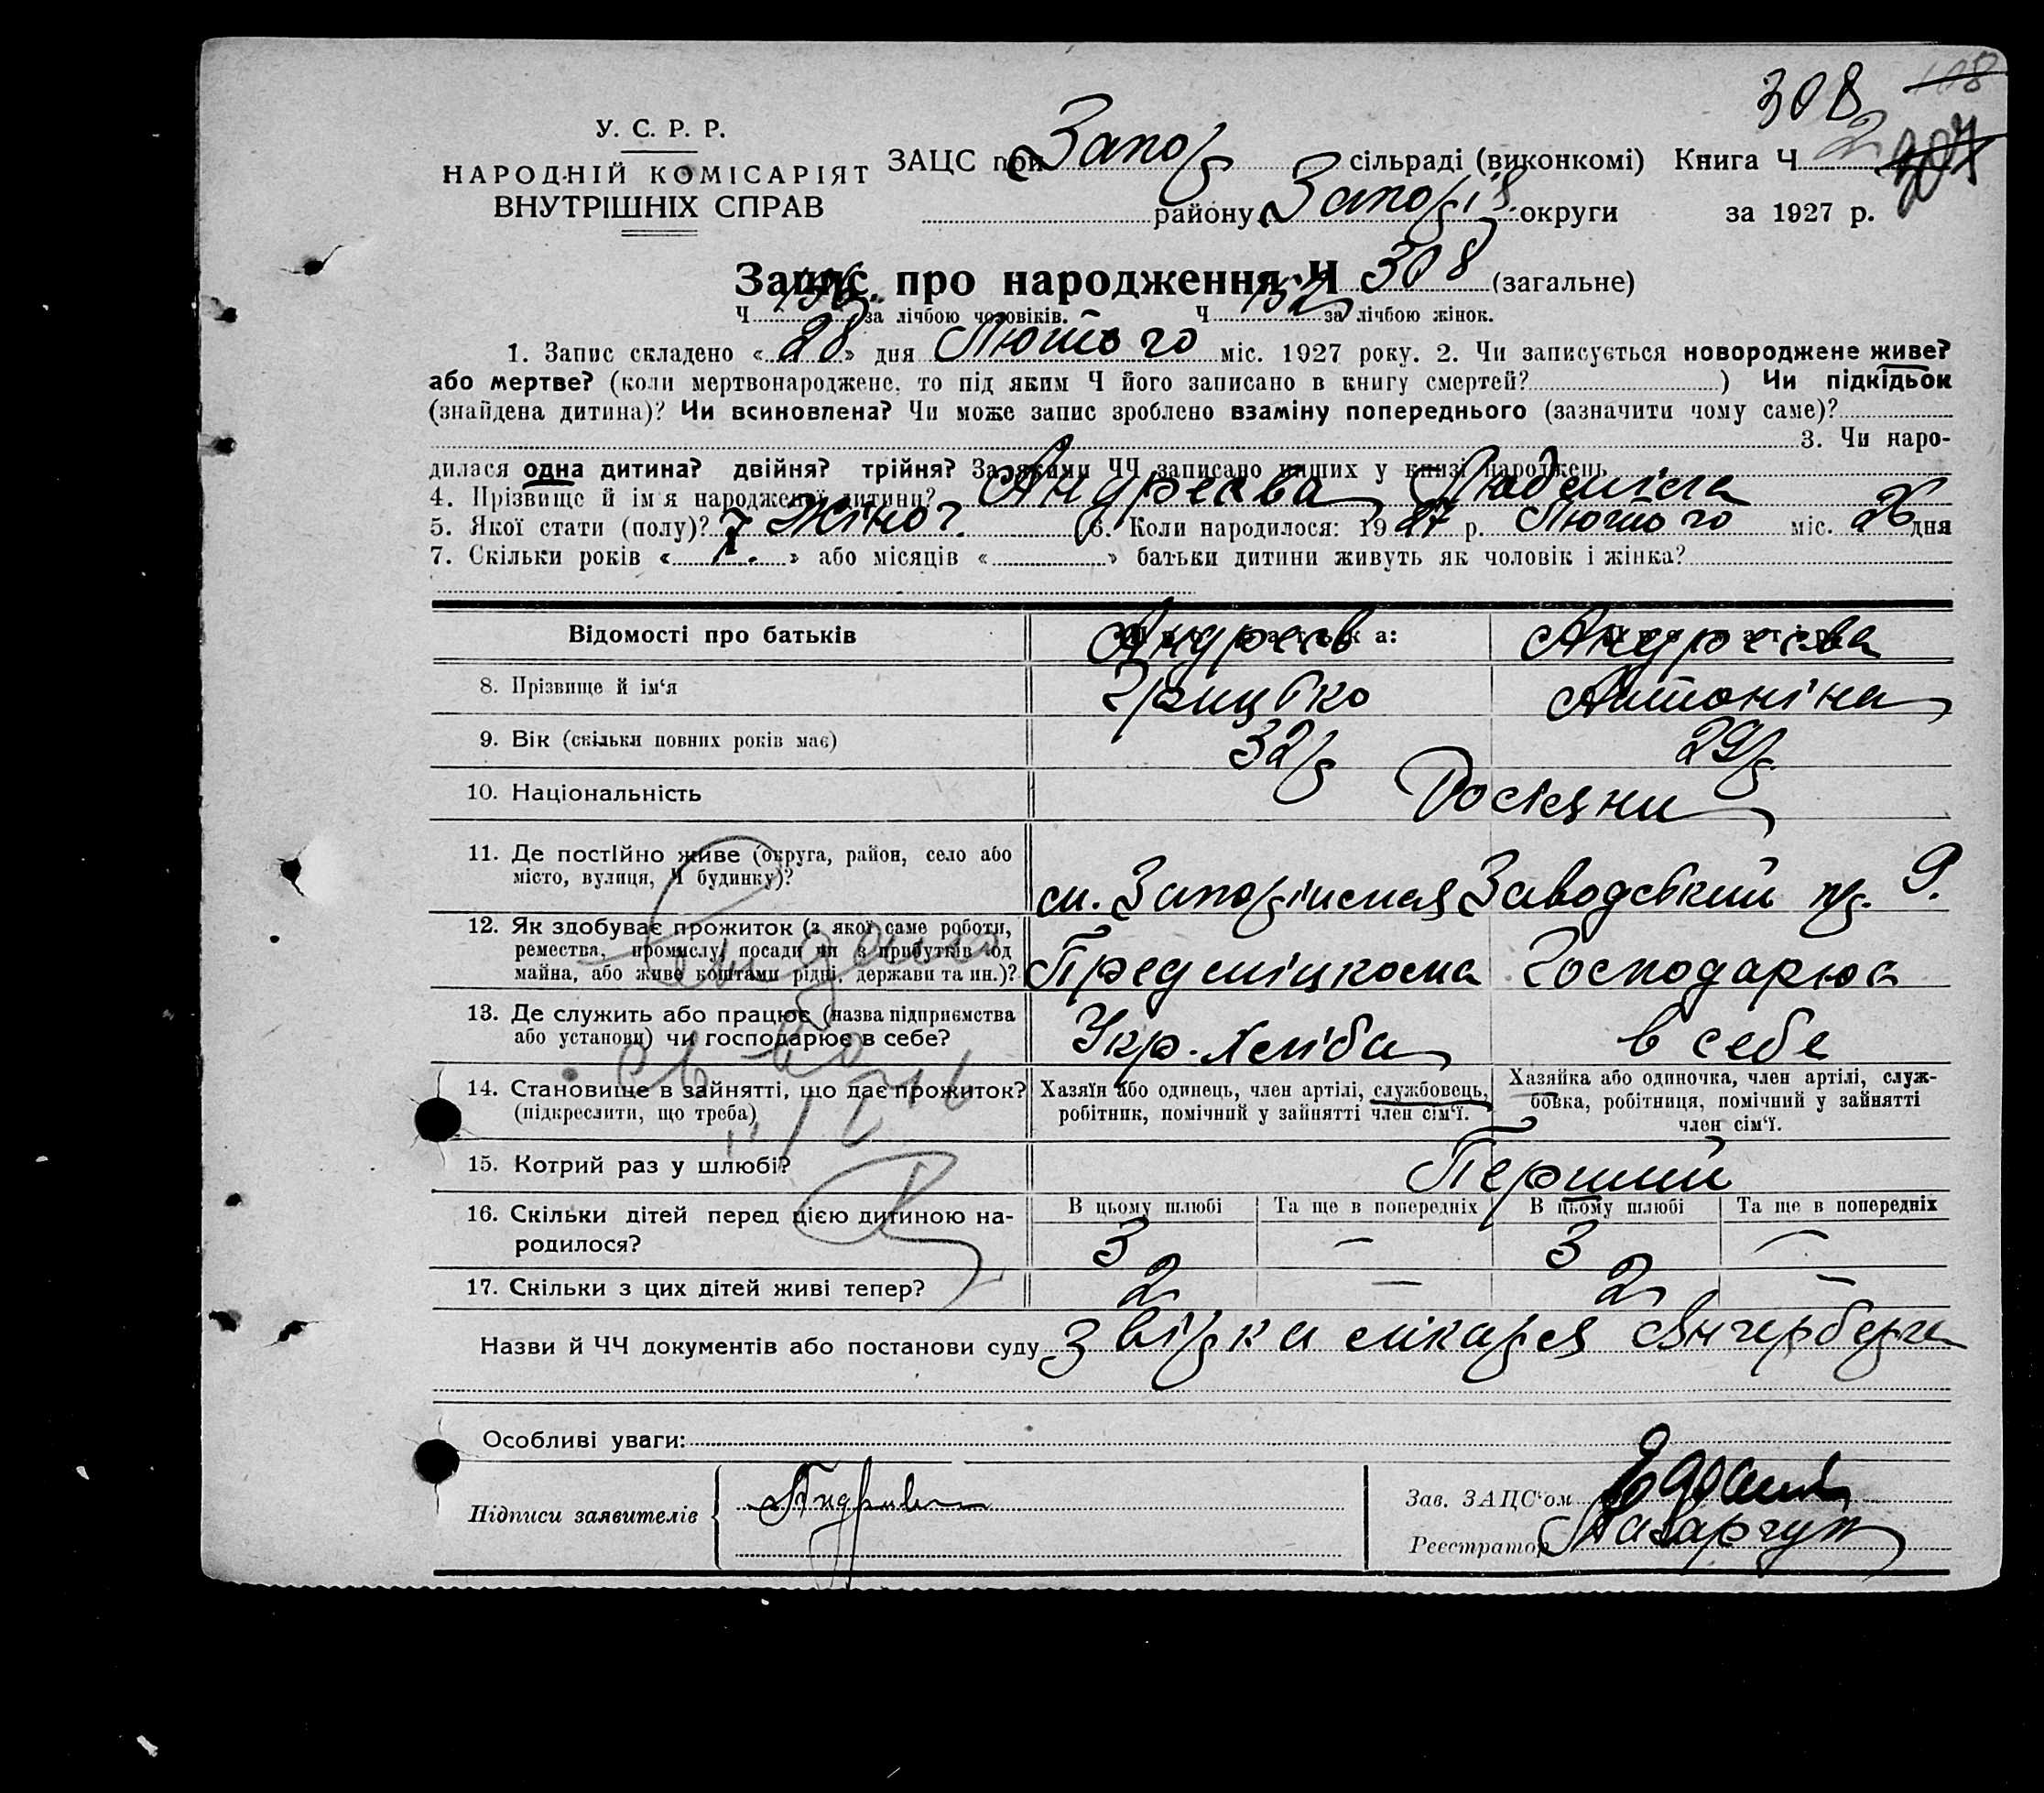 308 108
У. С. Р. Р.
НАРОДНІЙ КОМІСАРІЯТ
ВНУТРІШНІХ СПРАВ
ЗАЦС при Запоξ сільраді (виконкомі) Книга Ч 2 307
району Запоріз. округи за 1927 р.
Запис про народження Ч 308 (загальне)
Ч 156 за лічбою чоловіків. Ч 152 за лічбою жінок.
1. Запис складено « 28 » дня Лютого міс. 1927 року. 2. Чи записується новороджене живе?
або мертве? (коли мертвонароджене, то під яким Ч його записано в книгу смертей? ) Чи підкідьок
(знайдена дитина)? Чи всиновлена? Чи може запис зроблено взаміну попереднього (зазначити чому саме)?
3. Чи наро-
дилася одна дитина? двійня? трійня? За якими ЧЧ записано инших у книзі народжень
4. Прізвище й ім'я народженої дитини? Андреєва Людміла
5. Якої стати (полу)? Жіноч. 6. Коли народилося: 1927 р. Лютого міс. 26 дня
7. Скільки років « 7 » або місяців « » батьки дитини живуть як чоловік і жінка?
Відомості про батьків Андреєв Андреєва
8. Прізвище й ім'я Грицько Антоніна
9. Вік (скільки повних років має) 32 р 29 р
10. Національність Росіяни
11. Де постійно живе (округа, район, село або
місто, вулиця, Ч будинку)? м. Запоріжжя Заводський пр. 9.
12. Як здобуває прожиток (з якої саме роботи,
ремества, промислу, посади чи з прибутків од
майна, або живе коштами рідні, держави та ин.)? Предміцкома Господарює
13. Де служить або працює (назва підприємства
або установи) чи господарює в себе? Укр. хліба в себе
14. Становище в зайнятті, що дає прожиток?
(підкреслити, що треба)
Хазяїн або одинець, член артілі, службовець,
робітник, помічний у зайнятті член сім'ї.
Хазяйка або одиночка, член артілі, служ-
бовка, робітниця, помічний у зайнятті
член сім'ї.
15. Котрий раз у шлюбі? Перший
16. Скільки дітей перед цією дитиною на-
родилося?
В цьому шлюбі Та ще в попередніх В цьому шлюбі Та ще в попередніх
3 — 3 —
17. Скільки з цих дітей живі тепер? 2 — 2 —
Назви й ЧЧ документів або постанови суду звірка лікаря
Особливі уваги:
Підписи заявителів
Зав. ЗАЦС'ом
Реєстратор